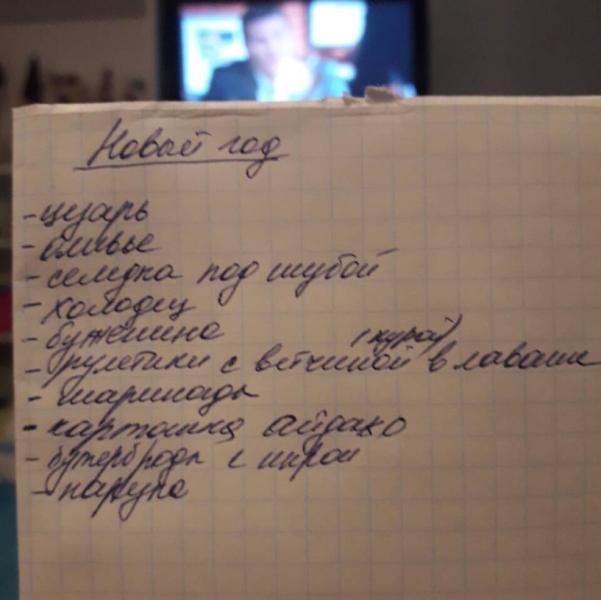 Новый год
- цезарь
- оливье
- селедка под шубой
- холодец
- буженина
(курой)
- рулетики с ветчиной в лаваше
- маринады
- картошка айдахо
- бутерброды с икрой
- нарезка